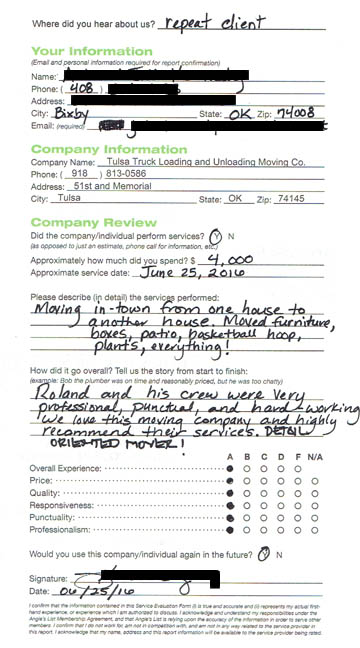 Where did you hear about us? repeat client
Your Information
(Email and personal information required for report confirmation)
Name:
Phone: ( 408 )
Address:
City: Bixby State: OK Zip: 74008
Email: (required)
Company Information
Company Name: Tulsa Truck Loading and Unloading Moving Co.
Phone: ( 918 ) 813-0586
Address: 51st and Memorial
City: Tulsa State: OK Zip: 74145
Company Review
Did the company/individual perform services? Y N
(as opposed to just an estimate, phone call for information, etc.)
Approximately how much did you spend? $ 4,000
Approximate service date: June 25, 2016
Please describe (in detail) the services performed:
Moving in-town from one house to
another house. Moved furniture,
boxes, patio, basketball hoop,
plants, everything!
How did it go overall? Tell us the story from start to finish:
(example: Bob the plumber was on time and reasonably priced, but he was too chatty)
Roland and his crew were very
professional, punctual, and hard-working
We love this moving company and highly
recommend their services. DETAIL
ORIENTED MOVER!
A B C D F N/A
Overall Experience:
Price:
Quality:
Responsiveness:
Punctuality:
Professionalism:
Would you use this company/individual again in the future? Y N
Signature:
Date: 06/25/16
I confirm that the information contained in this Service Evaluation Form (i) is true and accurate and (ii) represents my actual first-
hand experience, or experience which I am authorized to discuss. I acknowledge and understand my responsibilities under the
Angie's List Membership Agreement, and that Angie's List is relying upon the accuracy of the information in order to serve other
members. I confirm that I do not work for, am not in competition with, and am not in any way related to the service provider in
this report. I acknowledge that my name, address and this report information will be available to the service provider being rated.